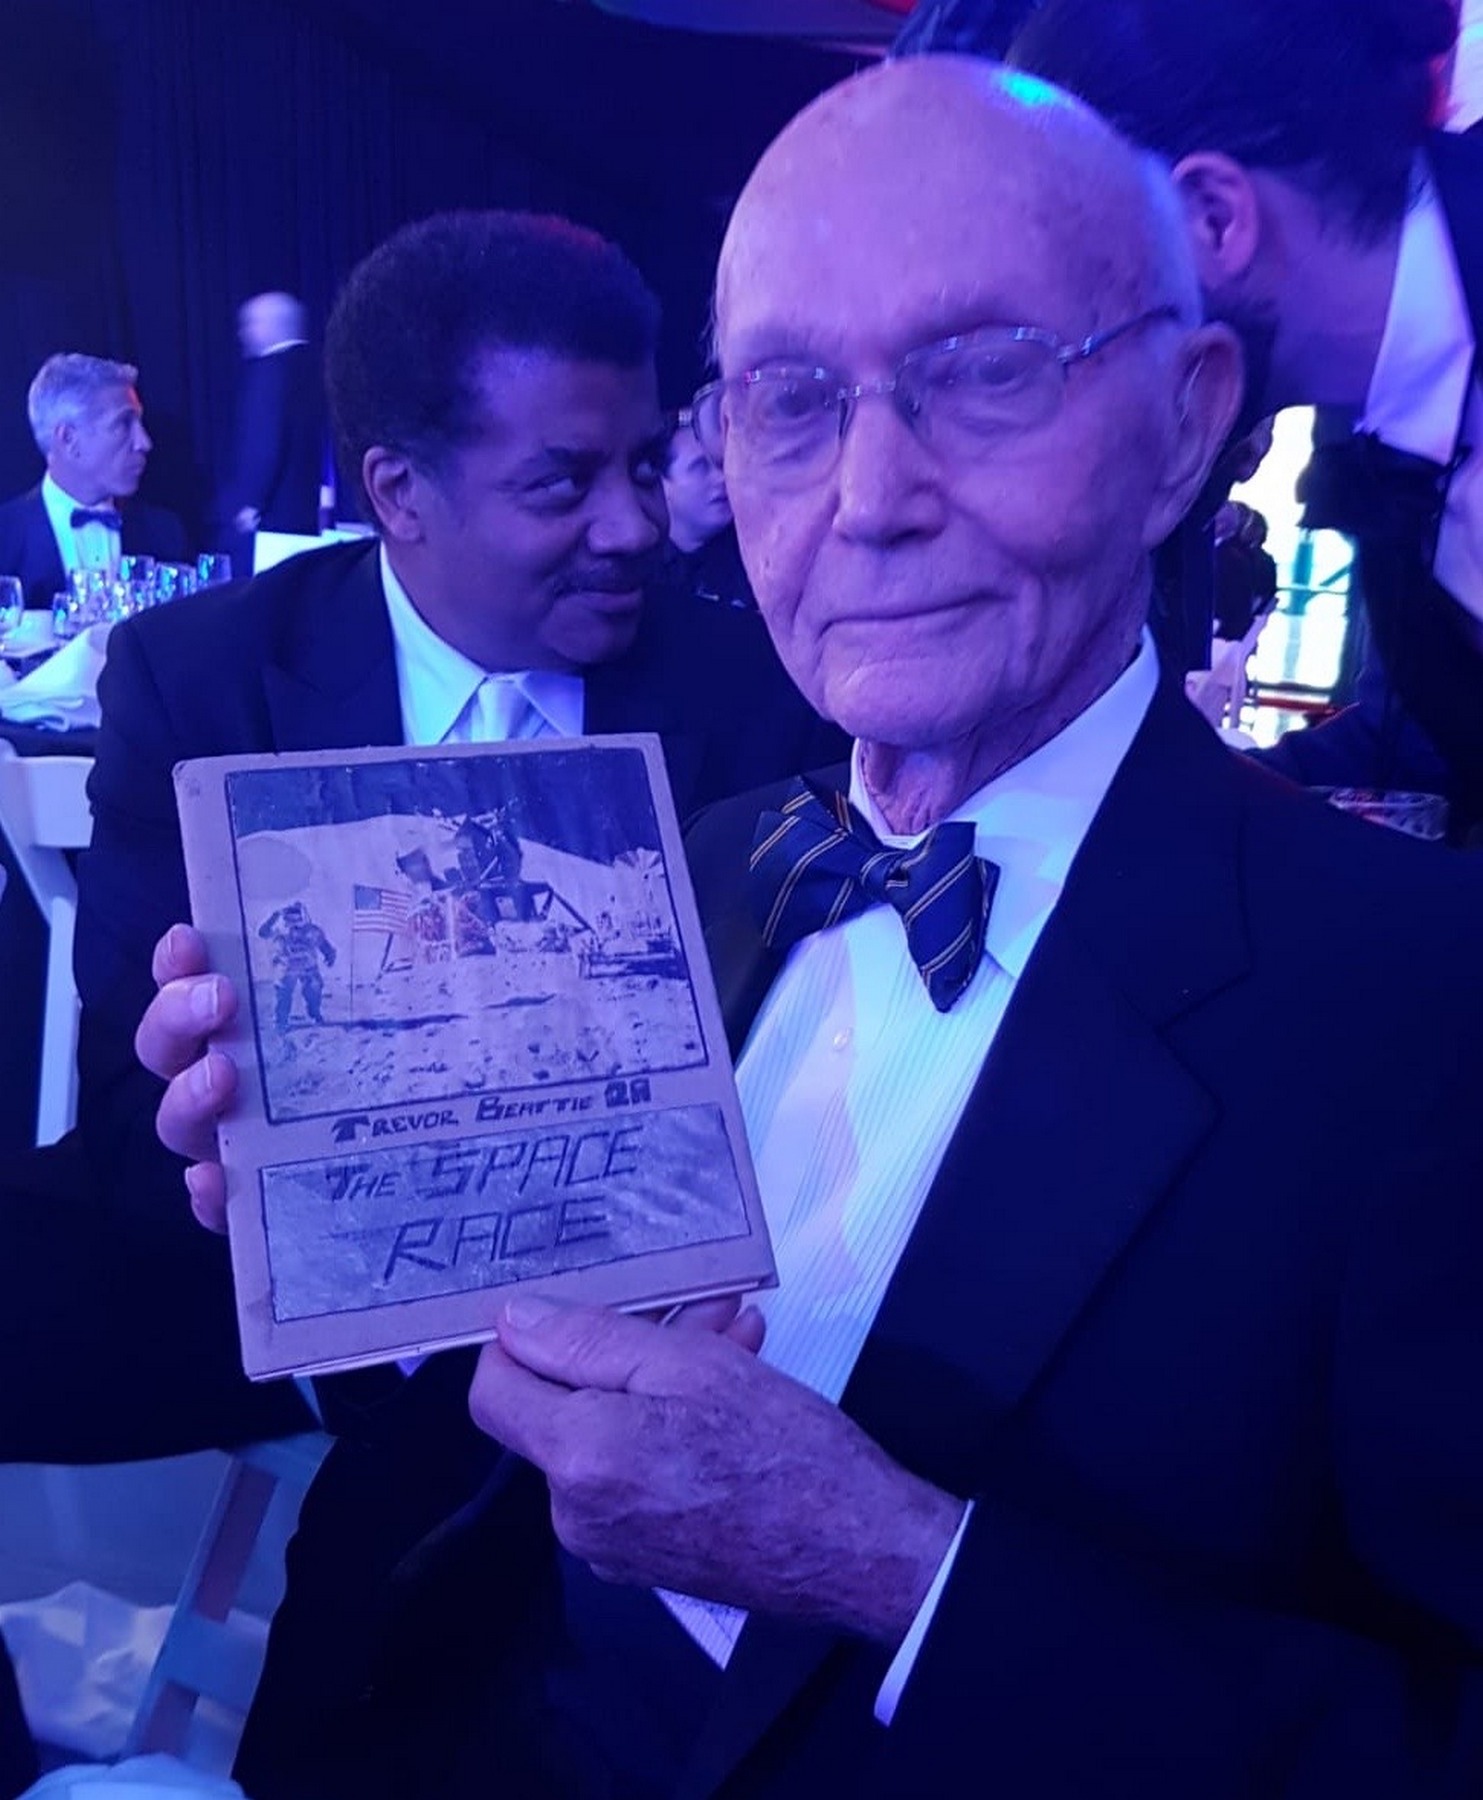 TREVOR BEATTIE 2A
THE SPACE
RACE